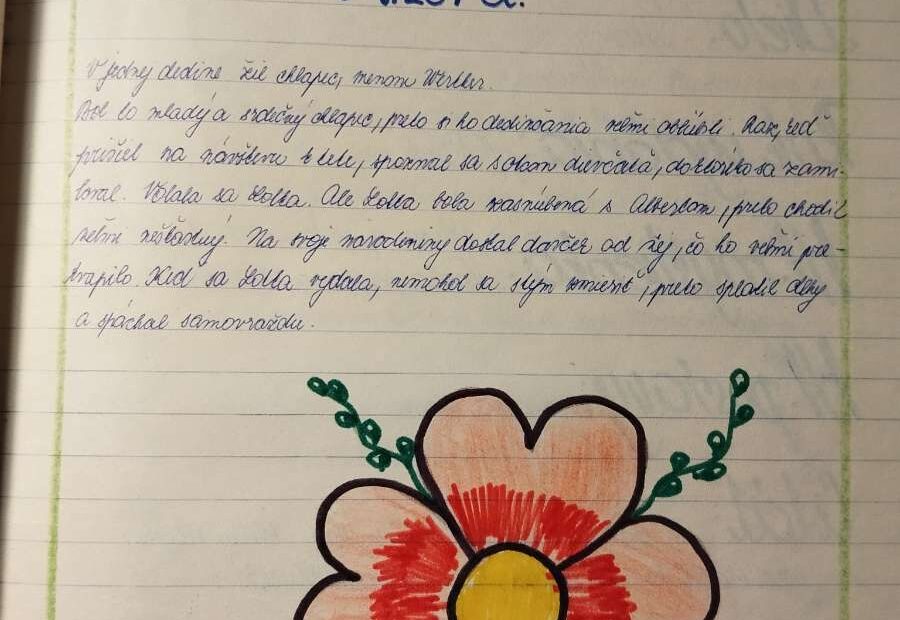 V jednej dedine žil chlapec, menom Werther.
Bol to mladý a srdečný chlapec, preto si ho dedinčania veľmi obľúbili. Raz, keď
prišiel na návštevu k tete, spoznal sa s dievčaťa, do ktorého sa zami-
loval. Volala sa Lotta. Ale Lotta bola zasnúbená s Albertom, preto chodil
veľmi nešťastný. Na svoje narodeniny dostal darček od nej, čo ho veľmi pre-
kvapilo. Keď sa Lotta vydala, nemohol sa s tým zmieriť, preto splatil dlhy
a spáchal samovraždu.